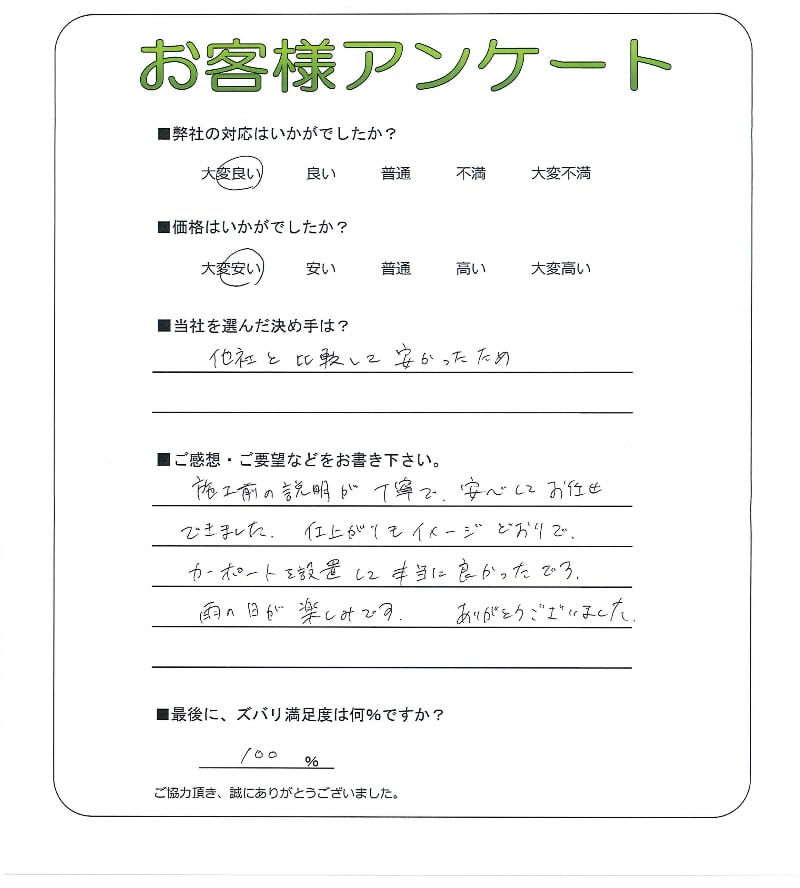 お客様アンケート
■弊社の対応はいかがでしたか？
大変良い 良い 普通 不満 大変不満
■価格はいかがでしたか？
大変安い 安い 普通 高い 大変高い
■当社を選んだ決め手は？
他社と比較して安かったため
■ご感想・ご要望などをお書き下さい。
施工前の説明が丁寧で、安心してお任せ
できました。仕上がりもイメージどおりで、
カーポートを設置して本当に良かったです。
雨の日が楽しみです。 ありがとうございました。
■最後に、ズバリ満足度は何％ですか？
100 ％
ご協力頂き、誠にありがとうございました。